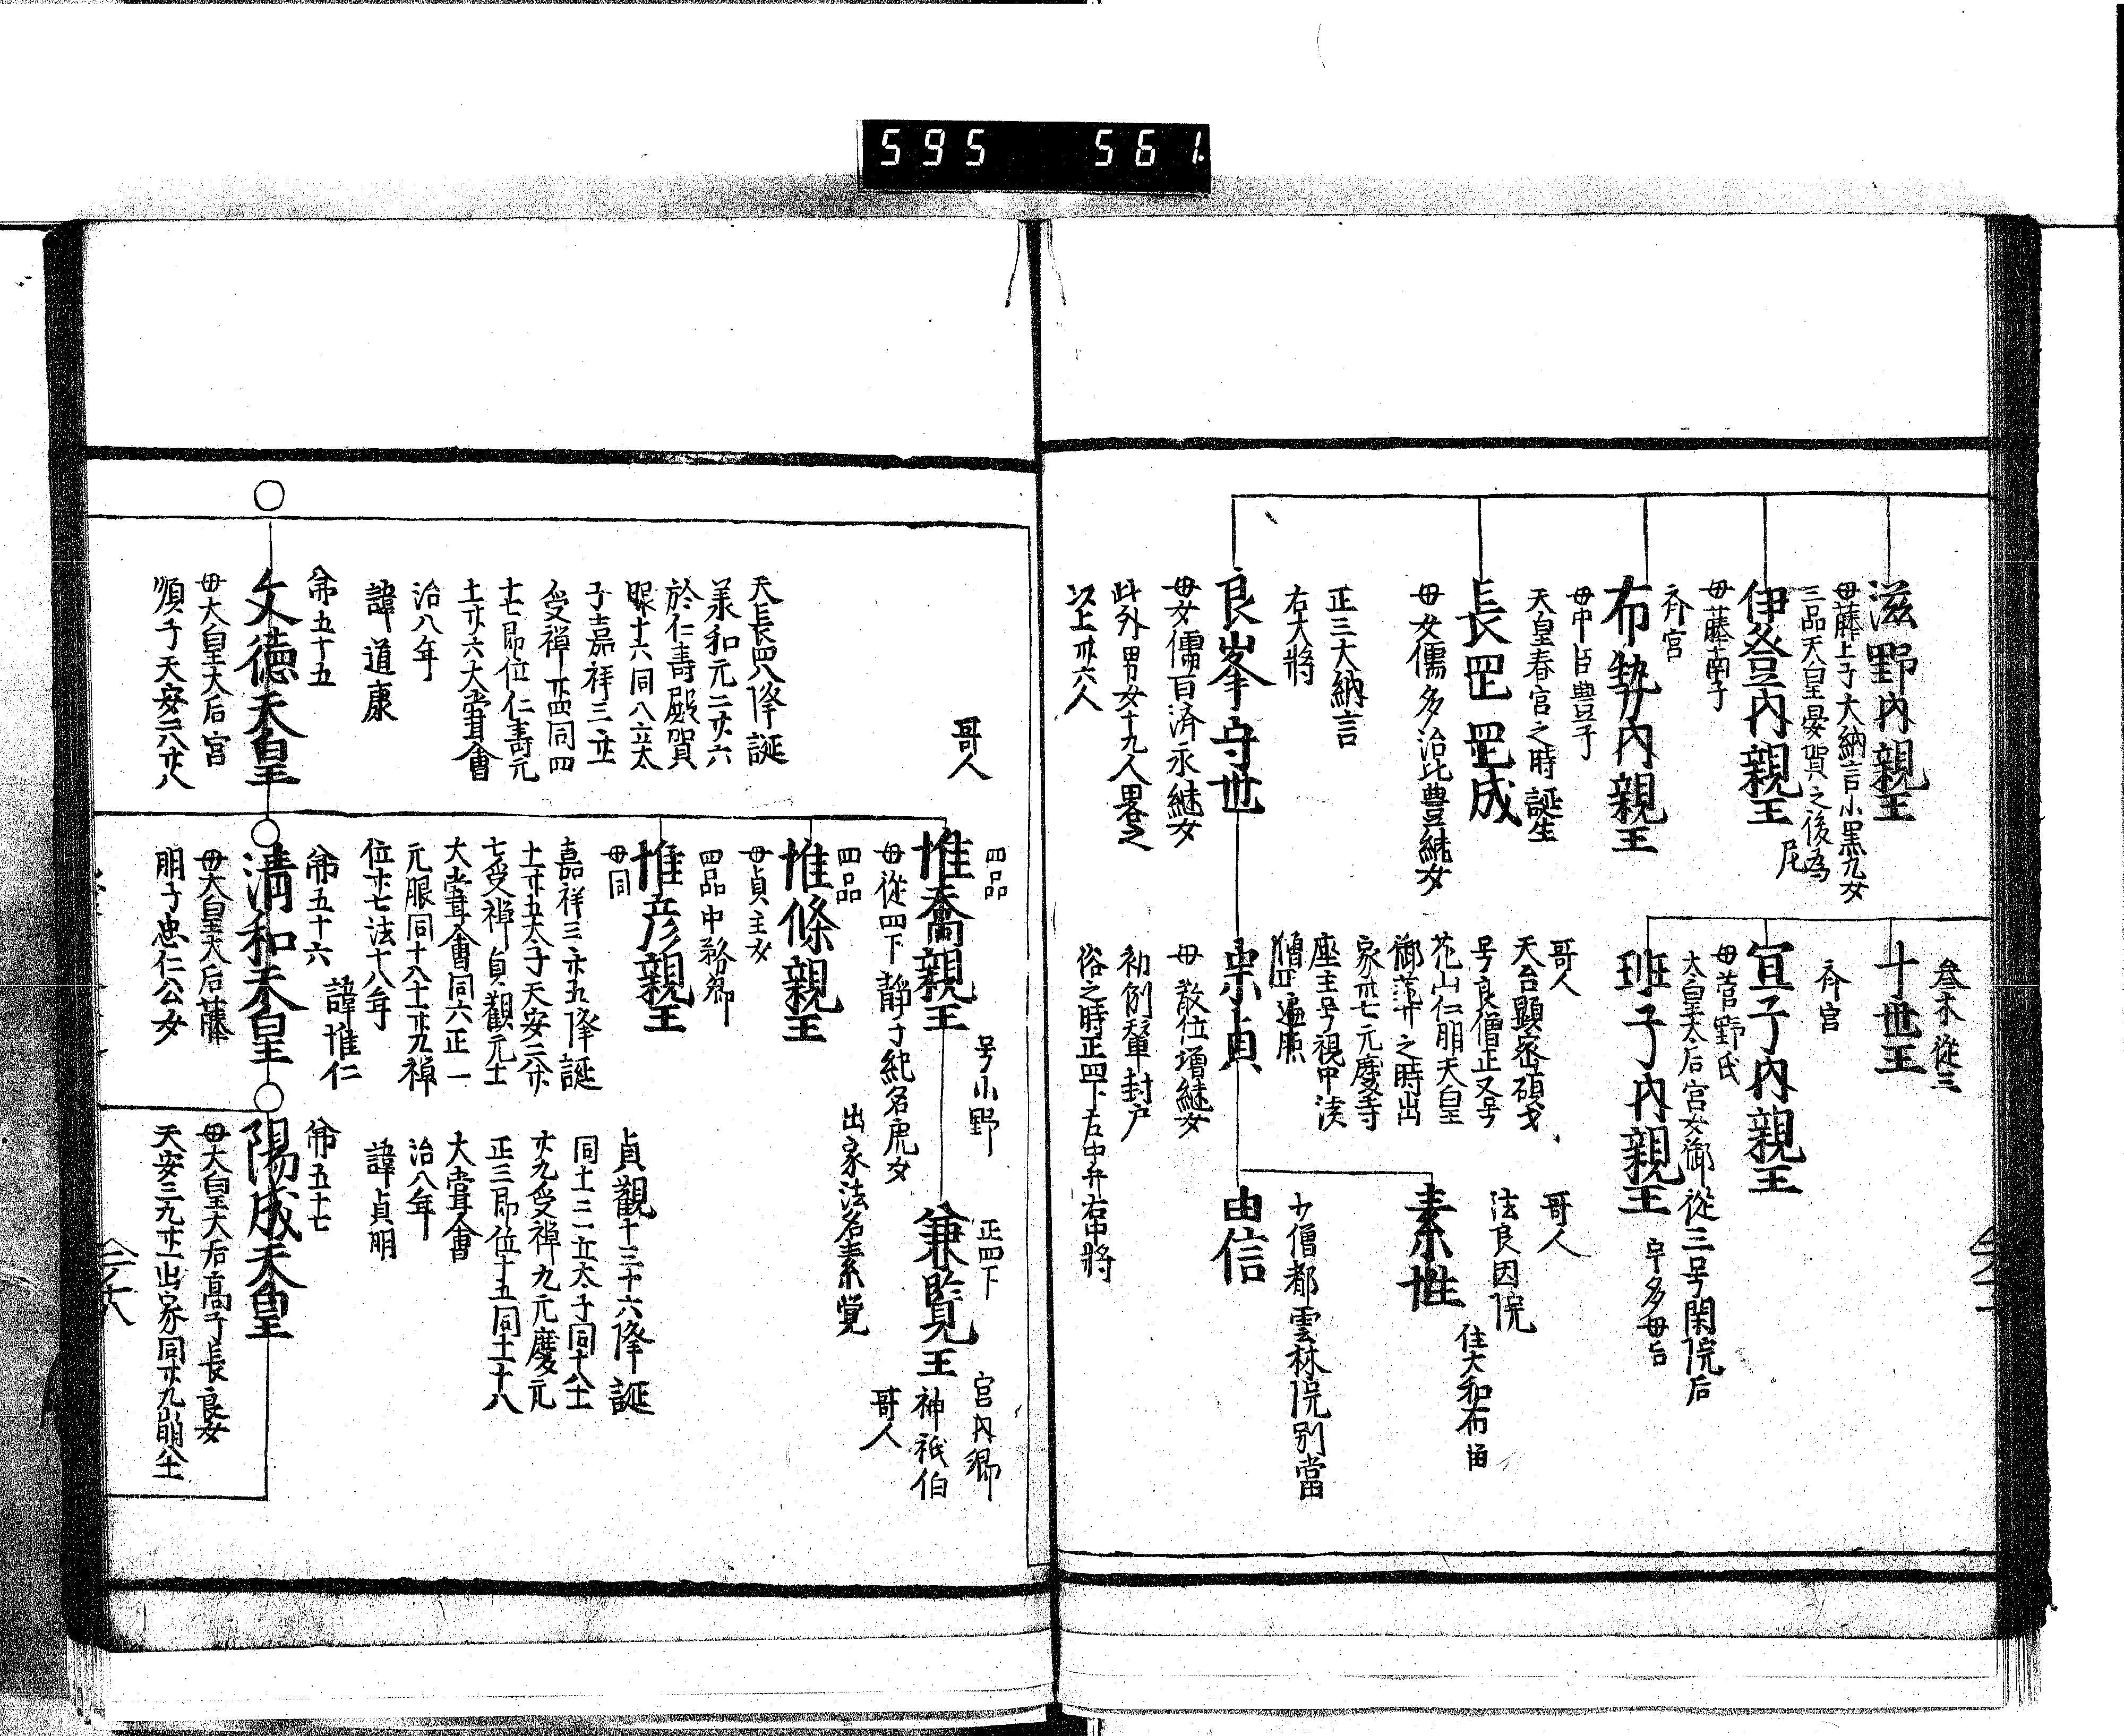 595 561
滋野内親王
母藤上子大納言小黒丸女
三品天皇晏賀之後為
尼
伊登内親王
母藤南子
斉宮
布勢内親王
母中臣豊子
天皇春宮之時誕生
長罡罡成
母女儒多治比豊継女
正三大納言
右大将
良峯守世
母女儒百済永継女
此外男女十九人畧之
以上卅六人
叅木従三
十世王
斉宮
宜子内親王
母菅野氏
太皇太后宮女御従三号閑院后
班子内親王
宇多母后
哥人
天台顕密碩才
号良僧正又号
花山仁明天皇
御薨之時出
家卅七元慶寺
座主号視中湊
僧正遍照
宗貞
母散位増継女
初例輦封戸
俗之時正四下左中弁右中将
哥人
法良因院
住大和布留
素性
少僧都雲林院別當
由信
哥人
天長四八降誕
美和元二廿六
於仁寿殿賀
眼十六同八立太
子嘉祥三廿
受禅正四同四
十七即位仁寿元
十一廿六大甞會
治八年
諱道康
帝五十五
文徳天皇
母大皇太后宮
順子天安二八廿八
四品
号小野
惟喬親王
母従四下静子紀名虎女
出家法名素覚
正四下
宮内卿
兼覧王
神祇伯
哥人
四品
惟條親王
母貞主女
四品中務卿
惟彦親王
母同
嘉祥三廿五降誕
十一廿五太子天安二廿
七受禅貞観元十一
大甞會同六正一
元服同十八十一廿九禅
位廿七法十八年
諱惟仁
帝五十六
清和天皇
母大皇大后藤
明子忠仁公女
貞観十三十六降誕
同十一二一立太子同十八十一
廿九受禅九元慶元
正三即位十五同十一十八
大甞會
治八年
諱貞明
帝五十七
陽成天皇
母大皇大后高子長良女
天安三九廿一出家同廿九崩八十一